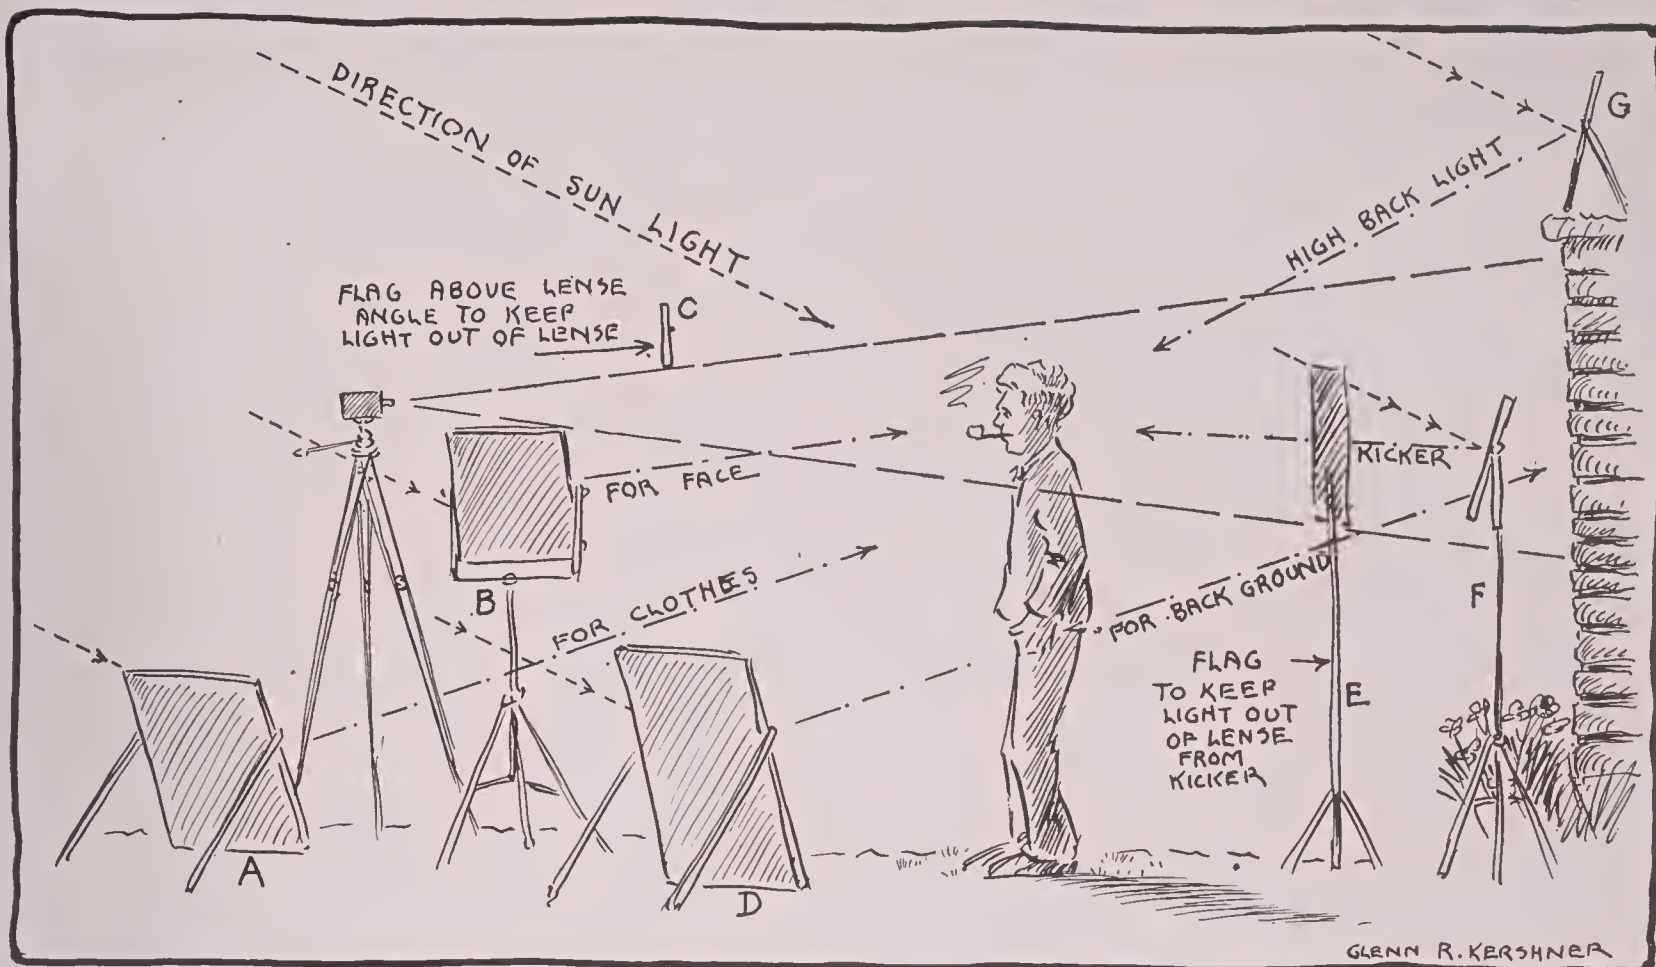 DIRECTION OF SUN LIGHT
G
HIGH BACK LIGHT
FLAG ABOVE LENSE
ANGLE TO KEEP
LIGHT OUT OF LENSE
C
KICKER
FOR FACE
B
FOR CLOTHES
F
FOR BACK GROUND
FLAG
TO KEEP
LIGHT OUT
OF LENSE
FROM
KICKER
E
A
D
GLENN R. KERSHNER